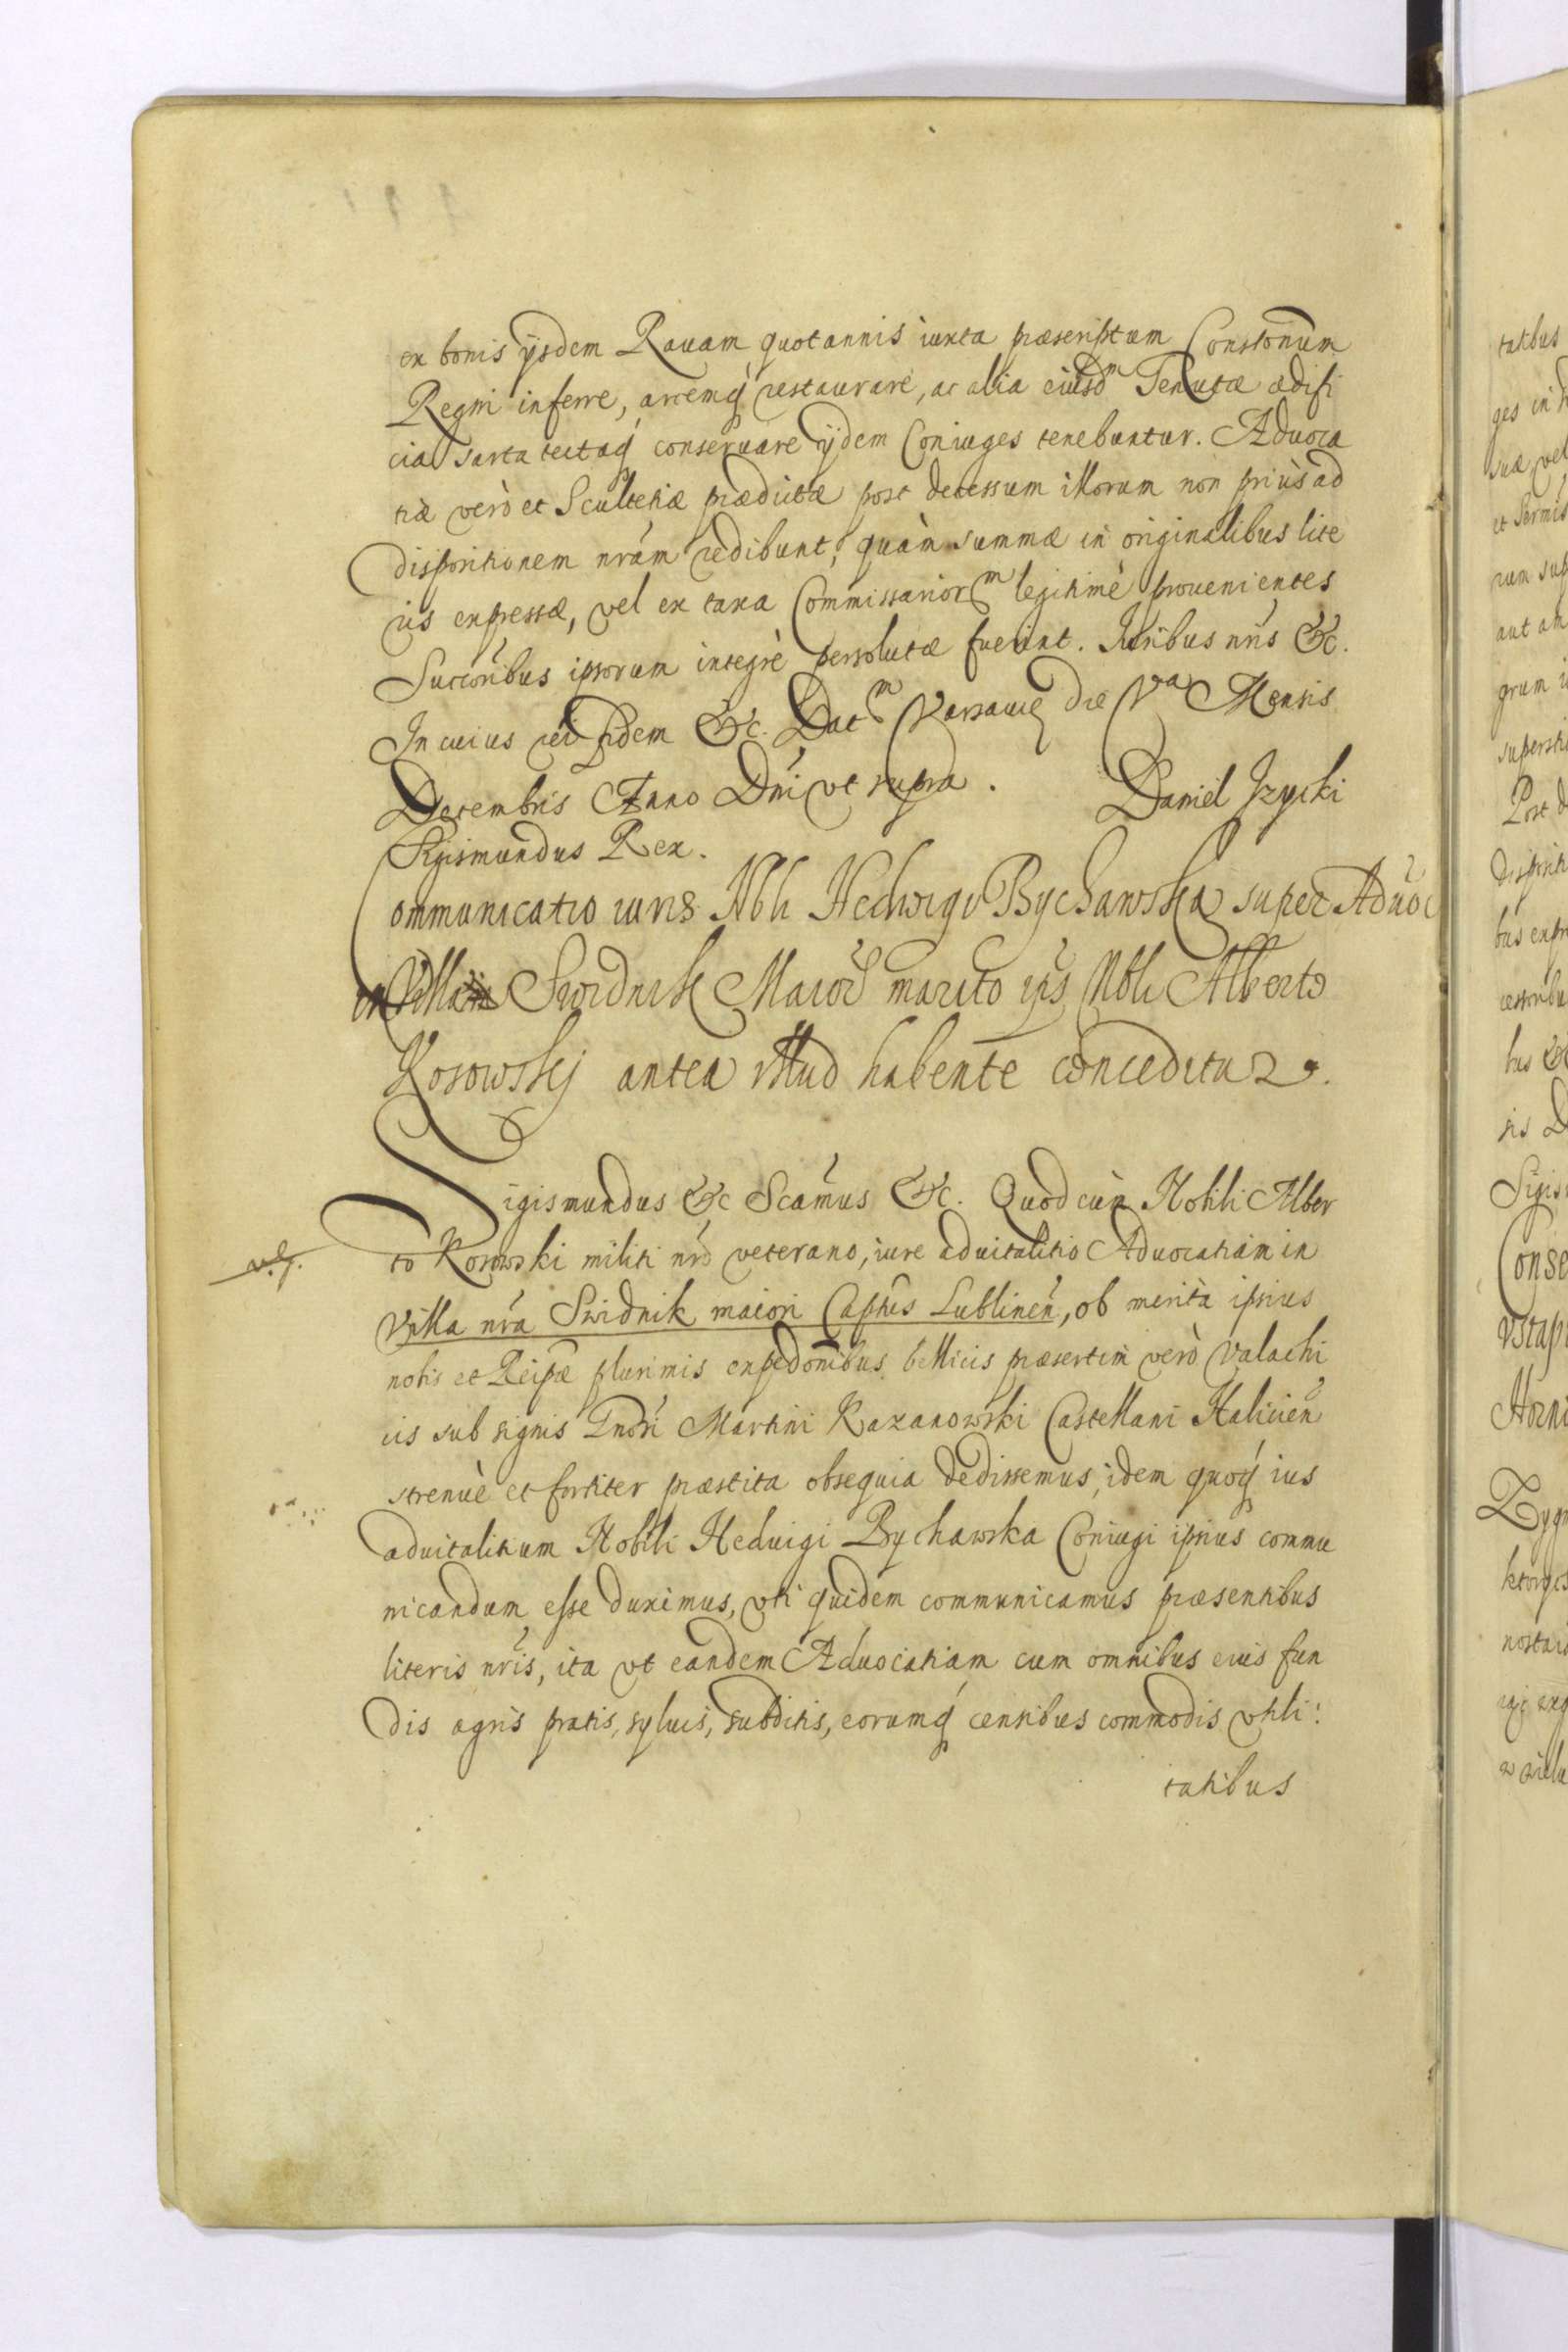 ex bonis ijsdem Rauam quotannis iuxta præscriptum Constonum
Regni inferre, arcemq́ restaurare, ac alia eiusdm Tenutæ ædifi
cia sarta tectaq́ conseruare ijdem Coniuges tenebuntur. Aduoca
tiæ verò et Scultetiæ prædictæ post decessum illorum non priùs ad
dispositionem nrám redibunt, quàm summæ in originalibus lite
ris expressæ, vel ex taxa Commissariorm legitimè prouenientes
Succoribus ipsorum integrè persolutæ fuerint. Iuribus nris &c.
In cuius rei fidem &c. Datm Varsauię die Va Mensis
Decembris Anno Dni vt supra. Daniel Izycki
Sigismundus Rex.
Communicatio iuris Nbli Hedwigi Bychawska super Aduoc
in Villa Swidnik Maiori marito eius Nbli Alberto
Kosowskij antea illud habente conceditur.
Sigismundus &c Scamus &c. Quod cùm Nobili Alber
to Kosowski militi nro veterano, iure aduitalitio Aduocatiam in
Villa nra Swidnik maiori Captus Lublinen, ob merita ipsius
nobis et Reipæ plurimis expedonibus bellicis præsertim verò Valachi
cis sub signis Gnosi Martini Kazanowski Castellani Halicien
strenuè et fortiter præstita obsequia dedissemus, idem quoq́ ius
aduitalitium Nobili Heduigi Bychawska Coniugi ipsius commu
nicandum esse duximus, vti quidem communicamus præsentibus
literis nris, ita vt eandem Aduocatiam cum omnibus eius fun
dis agris pratis, syluis, subditis, eorumq́ censibus commodis vtili:
tatibus